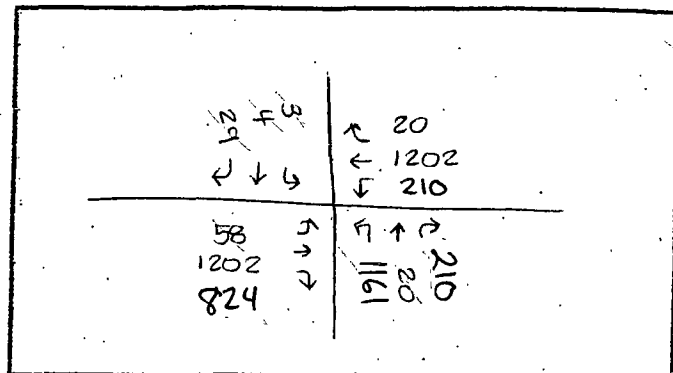 29
4
3
20
1202
210
58
1202
824
1161
20
210